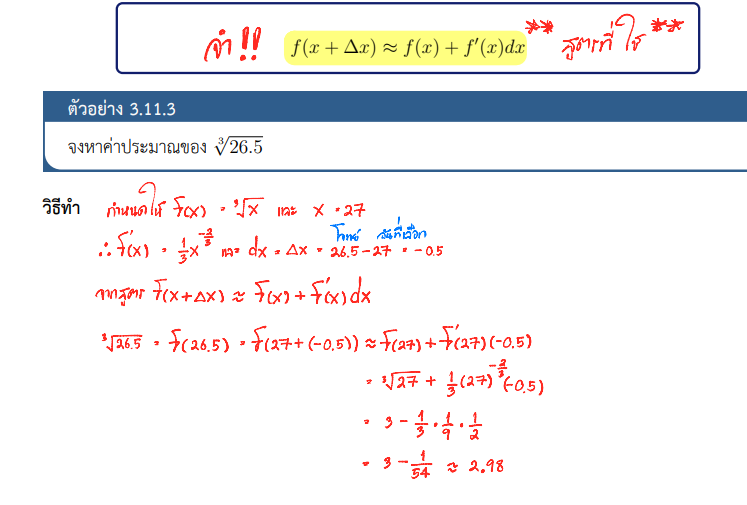 จำ!! f(x + Δx) ≈ f(x) + f′(x)dx ** สูตรที่ใช้ **
ตัวอย่าง 3.11.3
จงหาค่าประมาณของ ∛26.5
วิธีทำ กำหนดให้ f(x) = ∛x และ x = 27
โจทย์ อันที่เลือก
∴ f′(x) = 1/3 x^(-2/3) และ dx = Δx = 26.5 - 27 = -0.5
จากสูตร f(x+Δx) ≈ f(x) + f′(x)dx
∛26.5 = f(26.5) = f(27+(-0.5)) ≈ f(27) + f′(27)(-0.5)
= ∛27 + 1/3 (27)^(-2/3) (-0.5)
= 3 - 1/3 · 1/9 · 1/2
= 3 - 1/54 ≈ 2.98